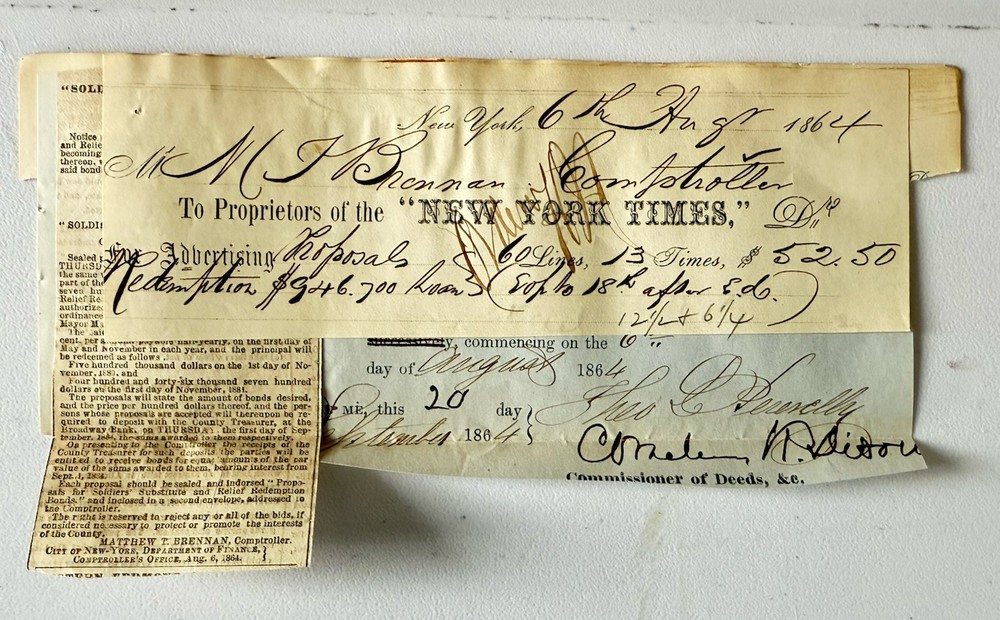 New York, 6th Augt 1864
Mr M T Brennan Comptroller
To Proprietors of the "NEW YORK TIMES," Dr
For Advertising Proposals 60 Lines, 13 Times, $ 52.50
Redemption $946.700 Loan
18th after
12½ + 6¼
"SOLD
Notice
and Relie
becoming
thereon, w
said bond
"SOLDI
Sealed p
THURSDA
the same
part of the
seven hu
Relief Re
authorize
ordinance
Mayor
The said
cent. per annum, payable half-yearly, on the first day of
May and November in each year, and the principal will
be redeemed as follows
Five hundred thousand dollars on the 1st day of No-
vember, and
Four hundred and forty-six thousand seven hundred
dollars on the first day of November, 1881.
The proposals will state the amount of bonds desired,
and the price per hundred dollars thereof, and the per-
sons whose proposals are accepted will thereupon be re-
quired to deposit with the County Treasurer, at the
Broadway Bank, on THURSDAY, the first day of Sep-
tember, 1864, the sums awarded to them respectively.
On presenting to the Comptroller the receipts of the
County Treasurer for such deposits, the parties will be
entitled to receive bonds for equal amounts of the par
value of the sums awarded to them, bearing interest from
Sept. 1, 1864.
Each proposal should be sealed and indorsed "Propo-
sals for Soldiers' Substitute and Relief Redemption
Bonds," and inclosed in a second envelope, addressed to
the Comptroller.
The right is reserved to reject any or all of the bids, if
considered necessary to protect or promote the interests
of the County.
MATTHEW T. BRENNAN, Comptroller.
CITY OF NEW-YORK, DEPARTMENT OF FINANCE, }
COMPTROLLER'S OFFICE, Aug. 6, 1864. }
successively, commencing on the 6"
day of August 1864
ME, this 20 day }
September 1864 }
Commissioner of Deeds, &c.